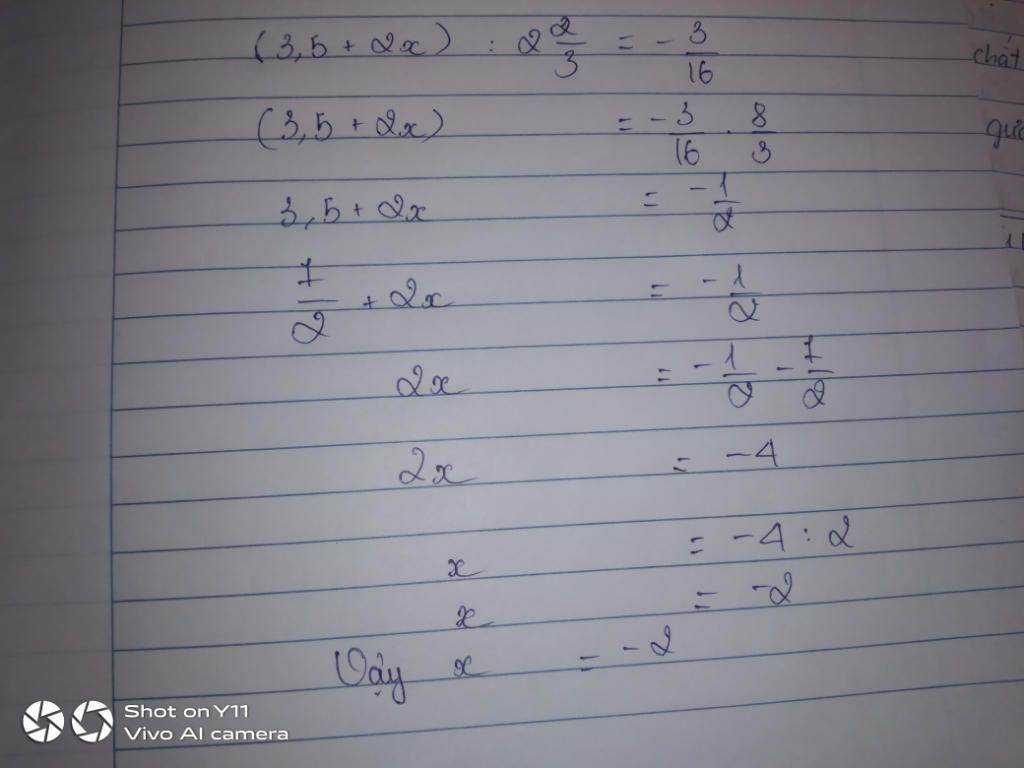 (3,5 + 2x) : 2 2/3 = - 3/16
(3,5 + 2x) = - 3/16 . 8/3
3,5 + 2x = -1/2
7/2 + 2x = -1/2
2x = -1/2 - 7/2
2x = -4
x = -4 : 2
x = -2
Vậy x = -2
chất
Shot on Y11
Vivo AI camera